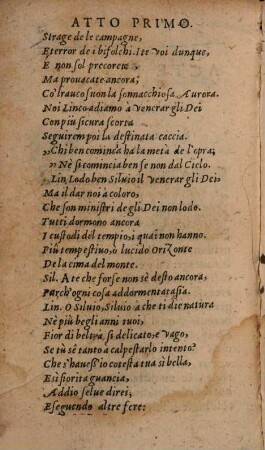 ATTO PRIMO.
Strage de le campagne,
E terror de i bifolchi. Ite voi dunque,
E non sol precorete
Ma provacate ancora;
Co'l rauco suon la sonnacchiosa Aurora.
Noi Linco adiamo à venerar gli Dei
Con più sicura scorta
Seguirem poi la destinata caccia.
„Chi ben comincia ha la metà de l'opra;
„Nè si comincia ben se non dal Cielo.
Lin. Lodo ben Siluio il venerar gli Dei,
Ma il dar noi à coloro,
Che son ministri de gli Dei non lodo.
Tutti dormono ancora
I custodi del tempio, i quai non hanno.
Più tempestivo, o lucido Orizonte
De la cima del monte.
Sil. A te che forse non sè desto ancora,
Parch'ogni cosa addormentata sia.
Lin. O Siluio, Siluio à che ti die natura
Nè più begli anni tuoi,
Fior di beltra, si delicato, e vago,
Se tù sè tanto a calpestarlo intento?
Che s'hauess'io cotesta tua sì bella,
E sì fiorita guancia,
Addio selue direi;
E seguendo altre fere: